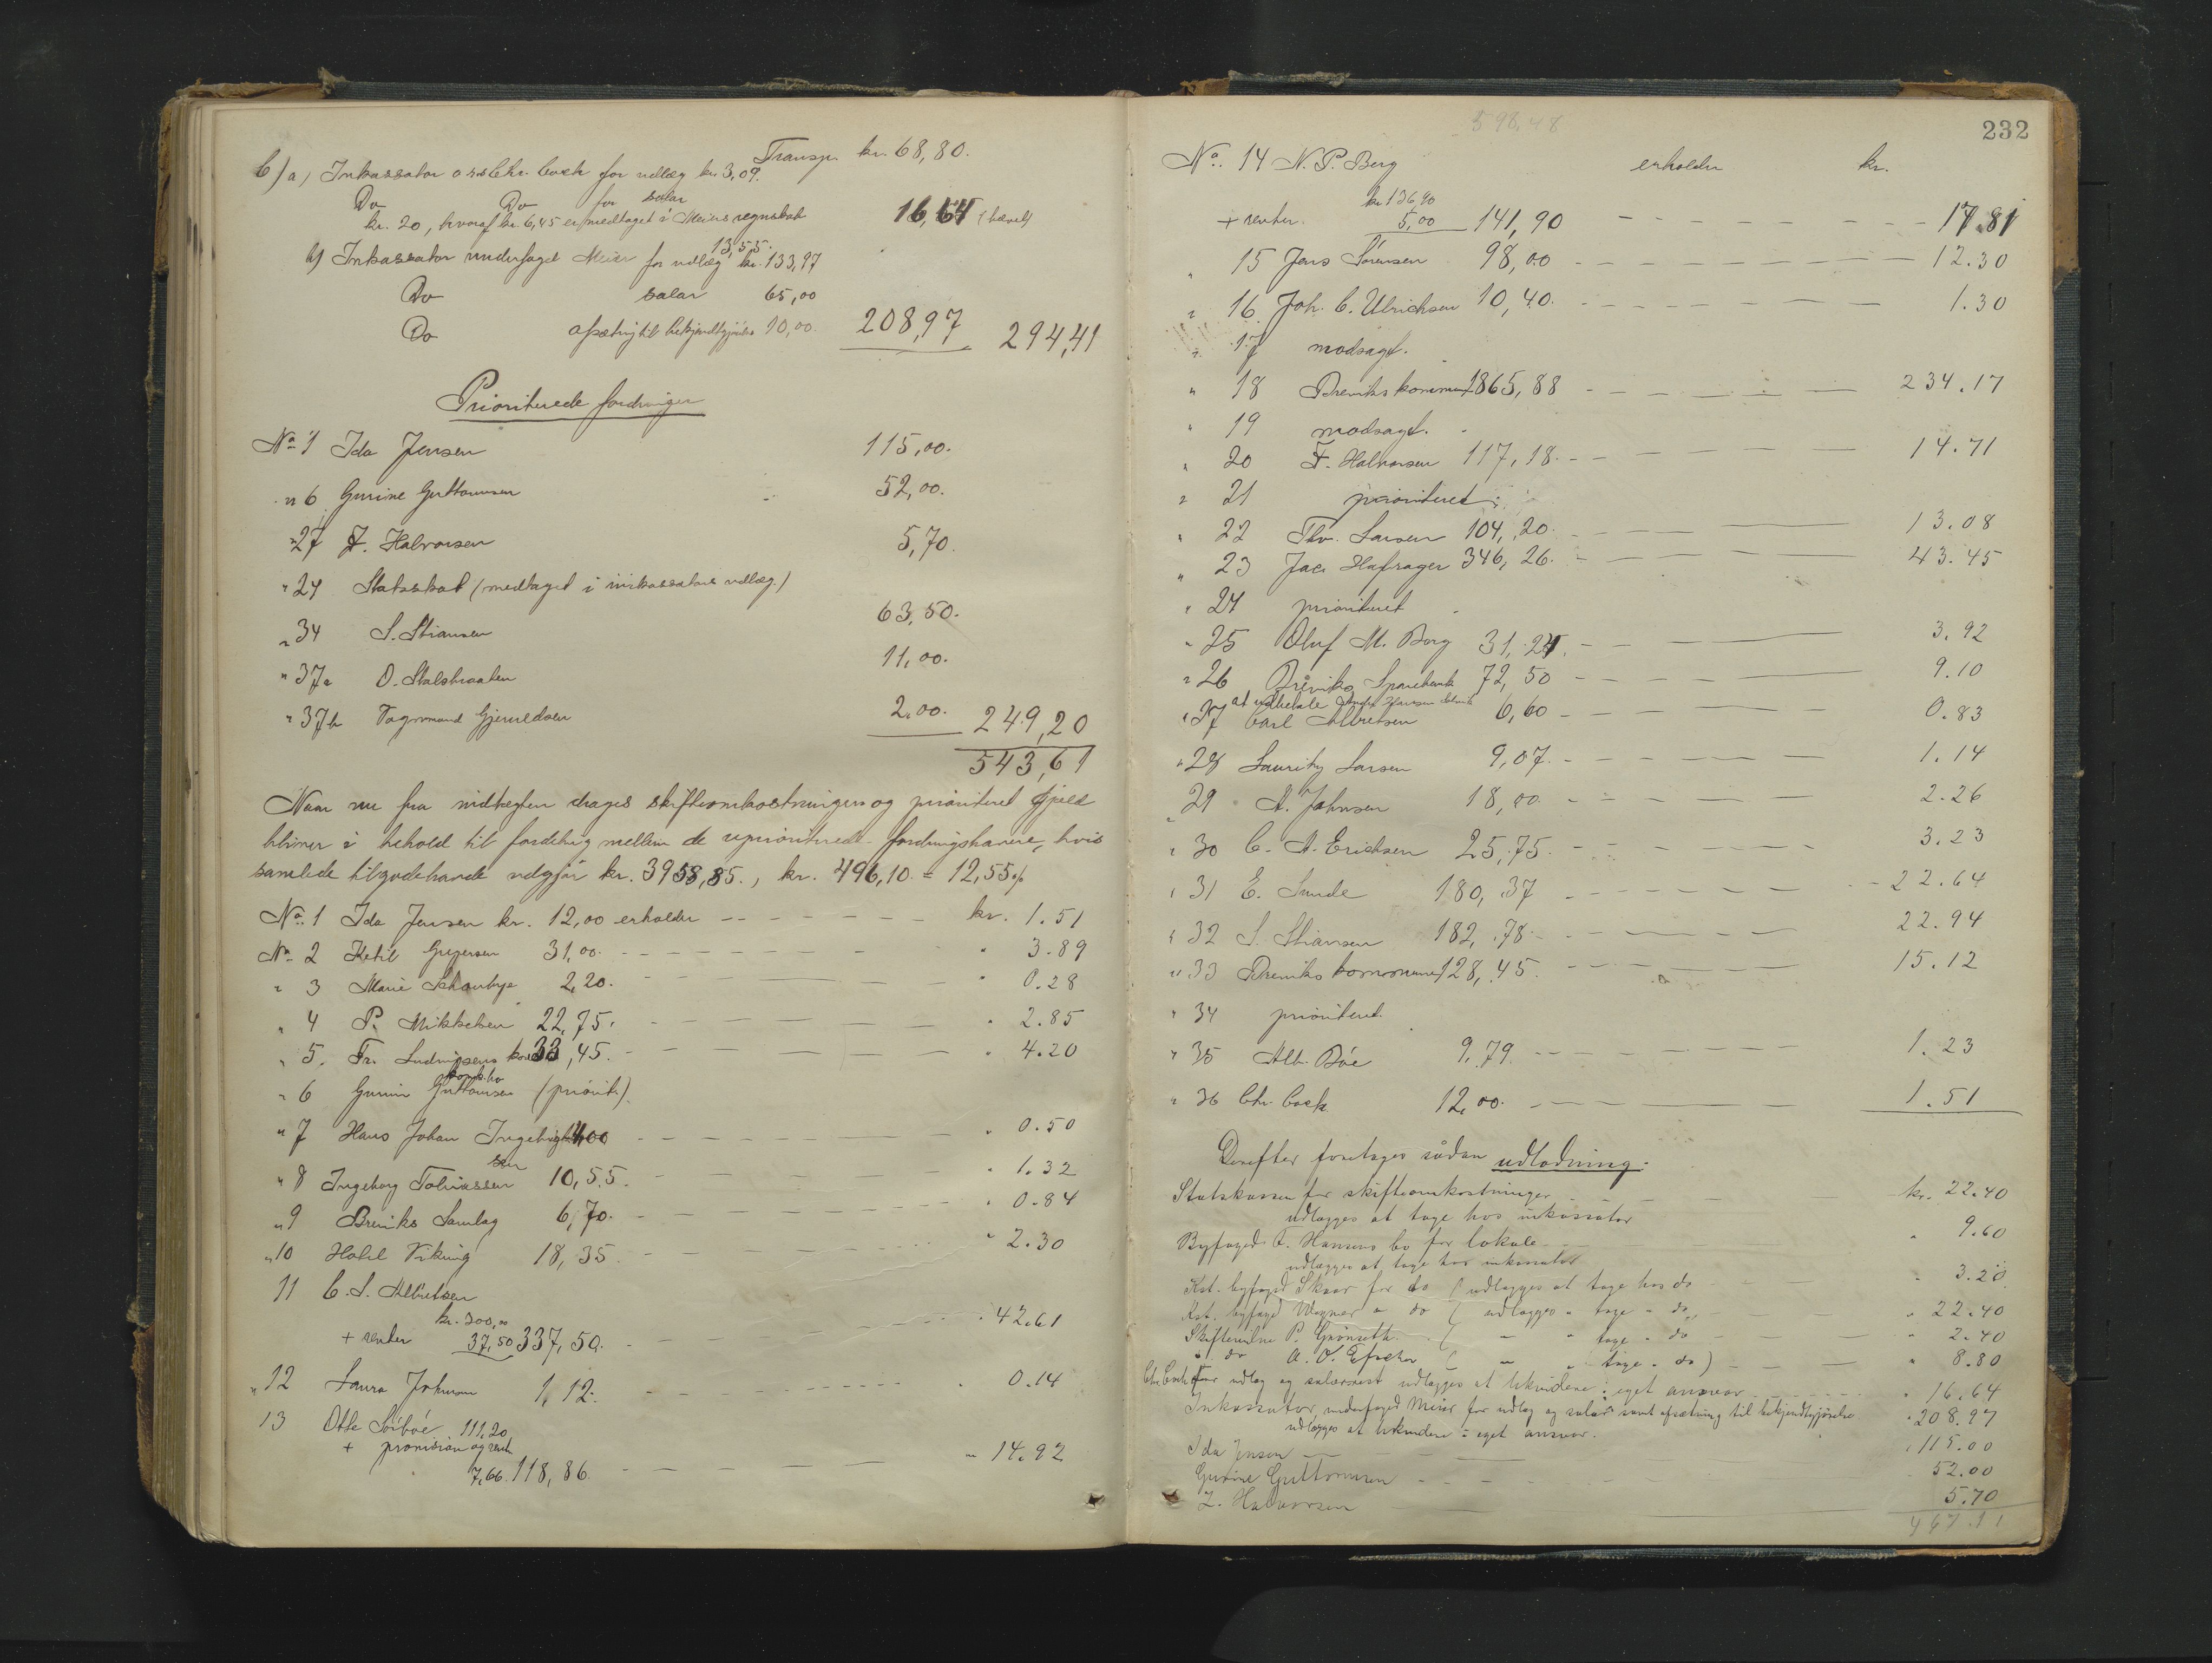 Transp. kr. 68,80.
6) a) Inkassator o.r.s. Chr. Cock for udlæg kr. 3,09.
Do Do for salær
kr. 20, hvoraf kr. 6,45 er medtaget i Meiers regnskab 16,64 (hævet)
13,55.
b) Inkassator underfoged Meier for udlæg kr. 133,97
Do salær 65,00
Do afsetning til bekjendtgjørelse 10,00. 208,97 294,41
Prioriterede fordringer
No 1 Ida Jensen 115,00.
" 6 Gurine Guttormsen 52,00.
" 27 F. Halvorsen 5,70.
" 24 Statsskat (medtaget i inkassators udlæg.)
" 34 S. Stiansen 63,50.
" 37a O. Stalstraaten 11,00.
" 37b Vognmand Gjerueldsen 2,00. 249,20
543,61
Naar nu fra indtægten drages skifteomkostningen og prioriteret gjæld
bliver i behold til fordeling mellem de uprioriterede fordringshavere, hvis
samlede tilgodehavende udgjør kr. 3958,85., kr. 496,10. = 12,55%
No. 1 Ida Jensen kr. 12,00 erholder kr. 1.51
No. 2 Ketil Gregersen 31,00. " 3.89
" 3 Marie Schanbye 2,20. " 0.28
" 4 P. Mikkelsen 22,75. " 2.85
" 5. Fr. Ludvigsens konk.bo 33,45. " 4.20
" 6 Gurine Guttormsen (priorit.)
" 7 Hans Johan Ingebrigtsen 4,00 " 0.50
" 8 Ingeborg Tobiassen 10,55. " 1.32
" 9 Breviks Samlag 6,70. " 0.84
" 10 Hotel Viking 18,35 " 2.30
11 C. S. Albretsen
kr. 300,00
+ renter 37,50 337,50. " 42.61
" 12 Laura Johnsen 1,12. " 0.14
13 Otto Sörböe 111,20
+ provision og rente
7,66. 118,86. " 14.92
598.48
232
No. 14 N. P. Berg erholder kr.
kr. 136,90
+ renter. 5,00 141,90 17.81
" 15 Jens Sørensen 98,00 12.30
" 16 Joh. C. Ulrichsen 10,40. 1.30
" 17 modsagt.
" 18 Breviks kommune 1865,88 234.17
" 19 modsagt.
" 20 F. Halvorsen 117,18. 14.71
" 21 prioriteret
" 22 Thv. Larsen 104,20. 13.08
" 23 Jac. Hafrager 346,26. 43.45
" 24 prioriteret
" 25 Oluf M. Borg 31,24. 3.92
" 26 Breviks Sparebank 72,50 9.10
at udbetale
" 27 Carl Albretsen 6,60 0.83
" 28 Lauritz Larsen 9,07. 1.14
" 29 A. Johnsen 18,00. 2.26
" 30 C. A. Erichsen 25,75. 3.23
" 31 E. Sunde 180,37 22.64
" 32 S. Stiansen 182,78. 22.94
" 33 Breviks kommune 128,45. 15.12
" 34 prioriteret.
" 35 Alb. Bøe 9,79. 1.23
" 36 Chr. Cock 12,00. 1.51
Derefter foretages sådan udlodning:
Statskassen for skifteomkostninger kr. 22.40
udlægges at tage hos inkassator
Byfoged C. Hansens bo for lokale " 9.60
udlægges at tage hos inkassator
Kst. byfoged Skaar for do (udlægges at tage hos do " 3.20
Kst. byfoged Wagner " do ( udlægges " tage " do " 22.40
Skiftevidne P. Grönseth. ( " " tage " do " 2.40
" do A. O. ( " " tage " do) " 8.80
Chr. Cock for udlæg og salærrest udlægges at likvidere i eget ansvar " 16.64
Inkassator underfoged Meier for udlæg og salær samt afsetning til bekjendtgjørelse " 208.97
udlægges at likvidere i eget ansvar.
Ida Jensen " 115.00
Gurine Guttormsen 52.00
F. Halvorsen 5.70
467.11